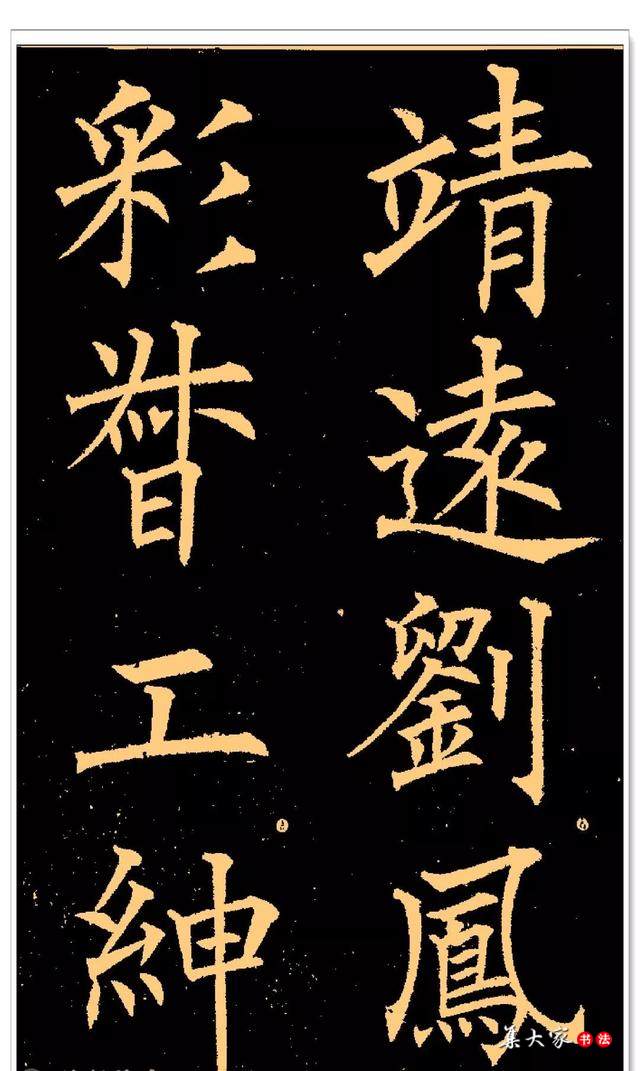 靖遠劉鳳
彩督工紳
集大家书法